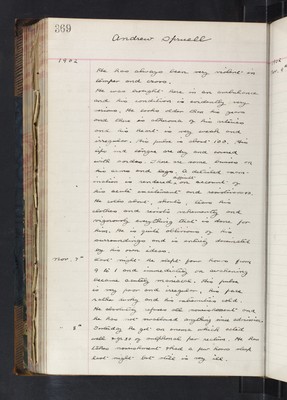 369
Andrew Spruell
1902
He has always been very violent in
temper and cross.
He was brought here in an ambulance
and his condition is evidently very
serious. He looks older than his years
and there is of his
and his heart is very weak and
irregular. His pulse is about 100. His
lips and tongue are dry and covered
with sordes. There are some bruises on
his arms and legs. A detailed exam-
ination is rendered difficult on account of
his acute excitement and resistiveness.
He rolls about, shouts, tears his
clothes and resists vehemently and
vigorously everything that is done for
him. He is quite oblivious of his
surroundings and is entirely dominated
by his own ideas.
Nov. 7th
Last night he slept four hours from
9 to 1 and immediately on awakening
became acutely maniacal. His pulse
is very poor and irregular, his face
rather dusky and his extremities cold.
He absolutely refuses all nourishment and
he has not swallowed anything since admission.
8th
Yesterday he got an enema which acted
well & grs 40 of sulphonal per rectum. He has
taken nourishment & had a few hours sleep
last night but still is very ill.